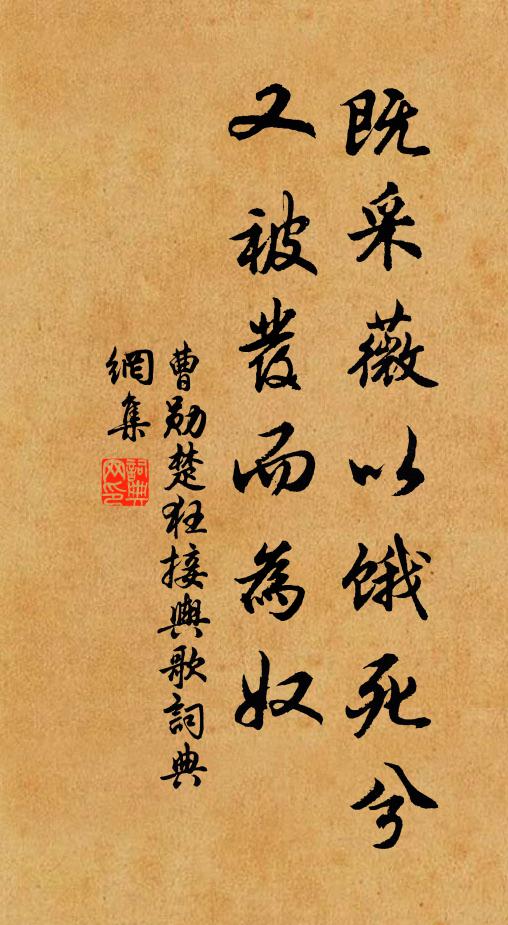 既采薇以餓死兮
又被發而為奴
曹勛楚狂接輿歌詞典
網集
詞典
网印